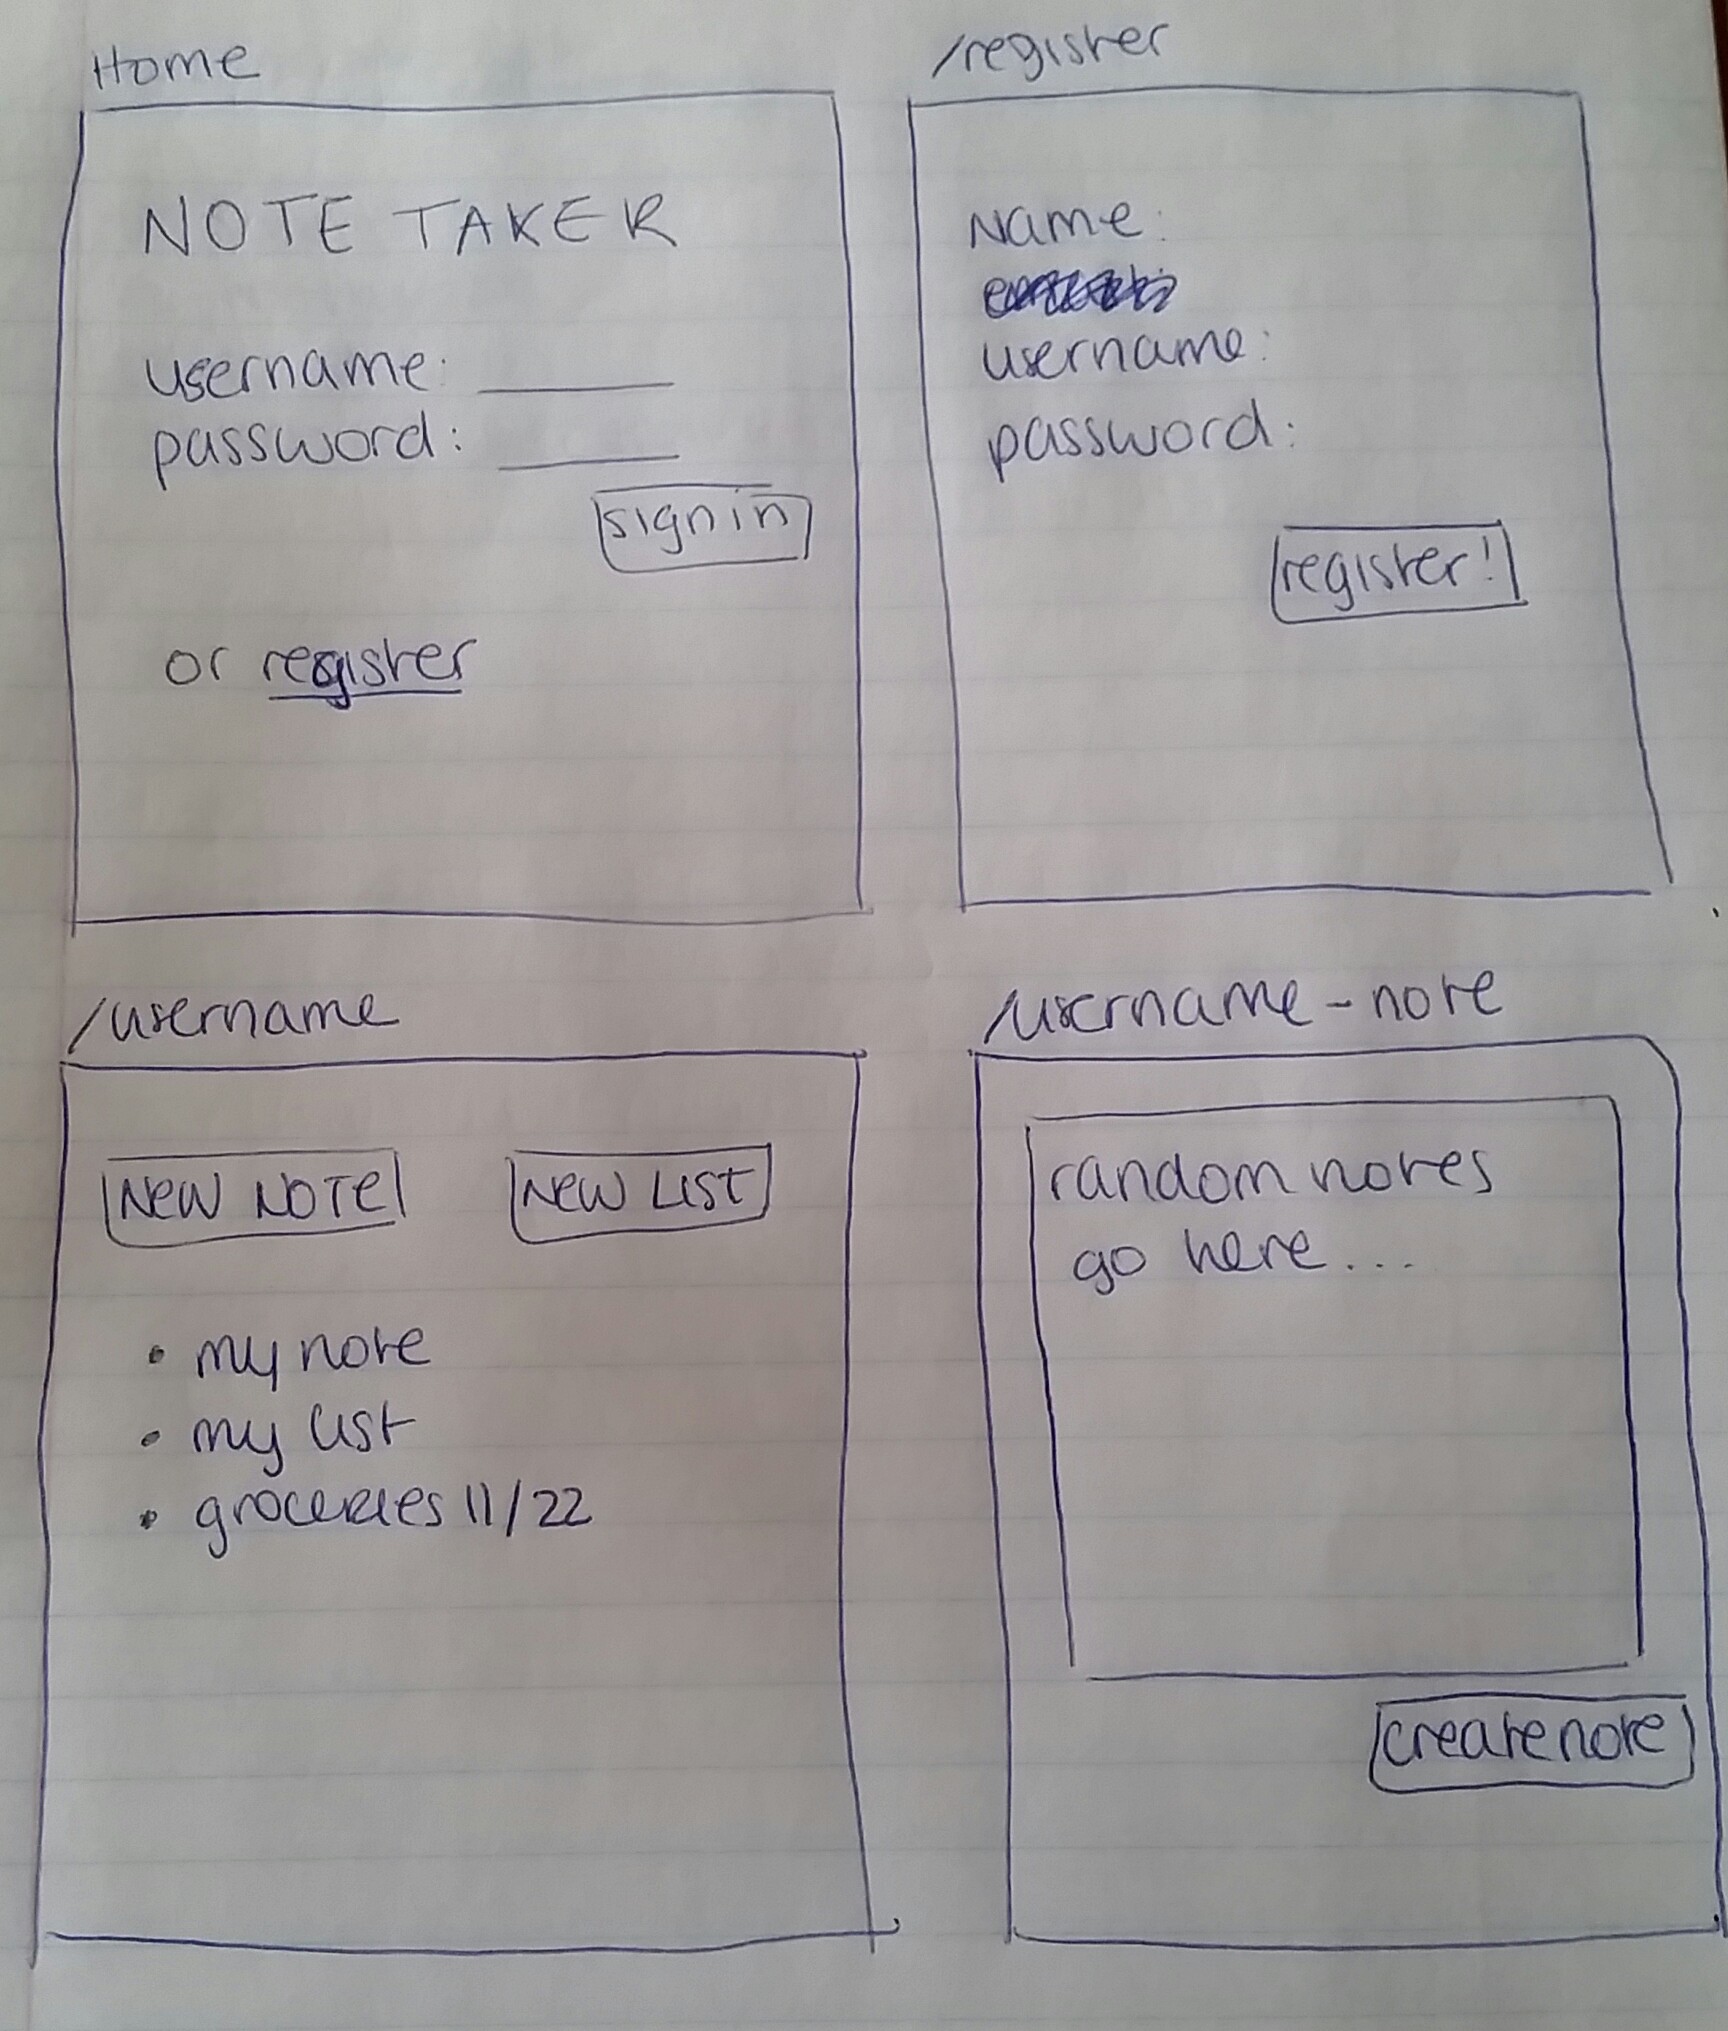 Home
NOTE TAKER
username: ______
password: ______
sign in
or register
/register
Name:
username:
password:
register!
/username
NEW NOTE
NEW LIST
• my note
• my list
• groceries 11/22
/username-note
random notes
go here...
create note